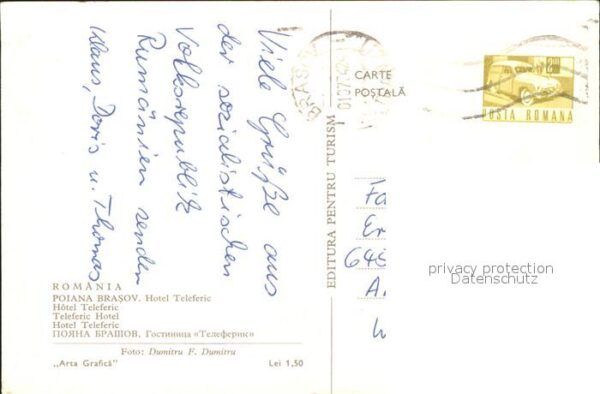 Viele Grüße aus
der sozialistischen
Volksrepublik
Rumänien senden
Klaus, Doris u. Thomas
ROMÂNIA
POIANA BRAȘOV. Hotel Teleferic
Hôtel Teleferic
Teleferic Hotel
Hotel Teleferic
ПОЯНА БРАШОВ. Гостиница «Телеферик»
Foto: Dumitru F. Dumitru
„Arta Grafică”
Lei 1,50
EDITURA PENTRU TURISM
CARTE
POȘTALĂ
POSTA ROMANA
privacy protection
Datenschutz